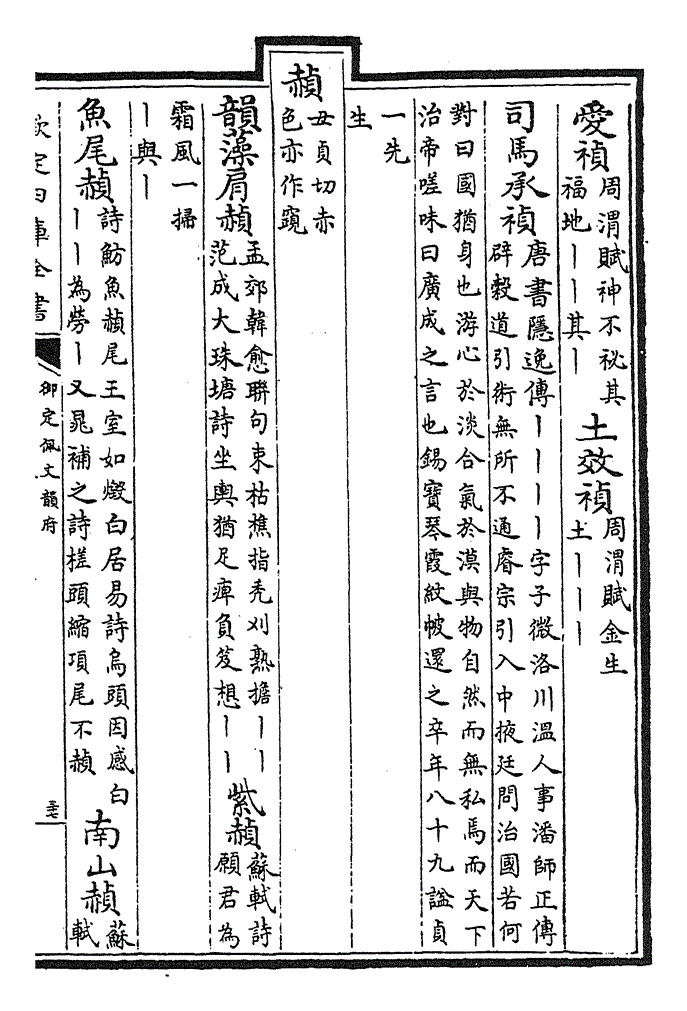 愛禎 周渭賦神不祕其
福地丨丨其丨
土效禎 周渭賦金生
土丨丨丨
司馬承禎 唐書隱逸傳丨丨丨丨字子微洛川溫人事潘師正傳
辟穀道引術無所不通睿宗引入中掖廷問治國若何
對曰國猶身也游心於淡合氣於漠與物自然而無私焉而天下
治帝嗟味曰廣成之言也錫寶琴霞紋帔還之卒年八十九諡貞
一先
生
赬 丑貞切赤
色亦作䞓
韻藻肩赬 孟郊韓愈聯句束枯樵指禿刈熟擔丨丨
范成大珠塘詩坐輿猶足痺負笈想丨丨
紫赬 蘇軾詩
願君為
霜風一掃
丨與丨
魚尾赬 詩魴魚赬尾王室如燬白居易詩烏頭因感白
丨丨為勞丨又晁補之詩槎頭縮項尾不赬
南山赬 蘇
軾
欽定四庫全書
御定佩文韻府
三七